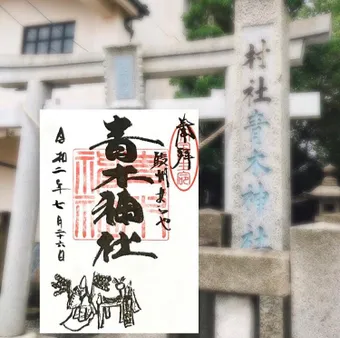 村社青木神社
奉拝
青木神社
令和二年七月二十六日